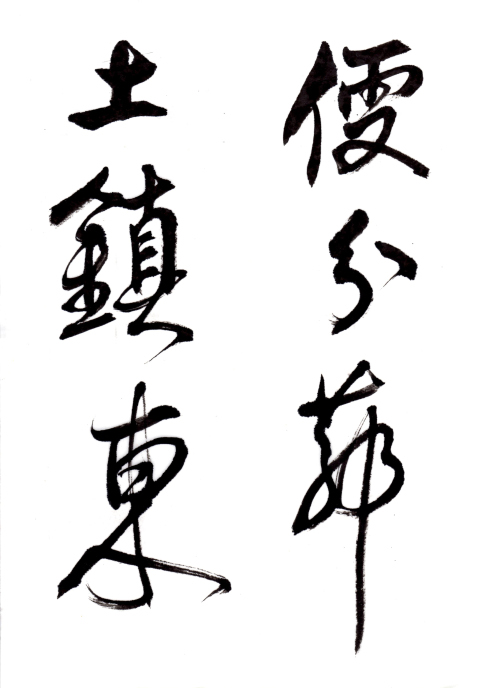 便分茅
土鎮東